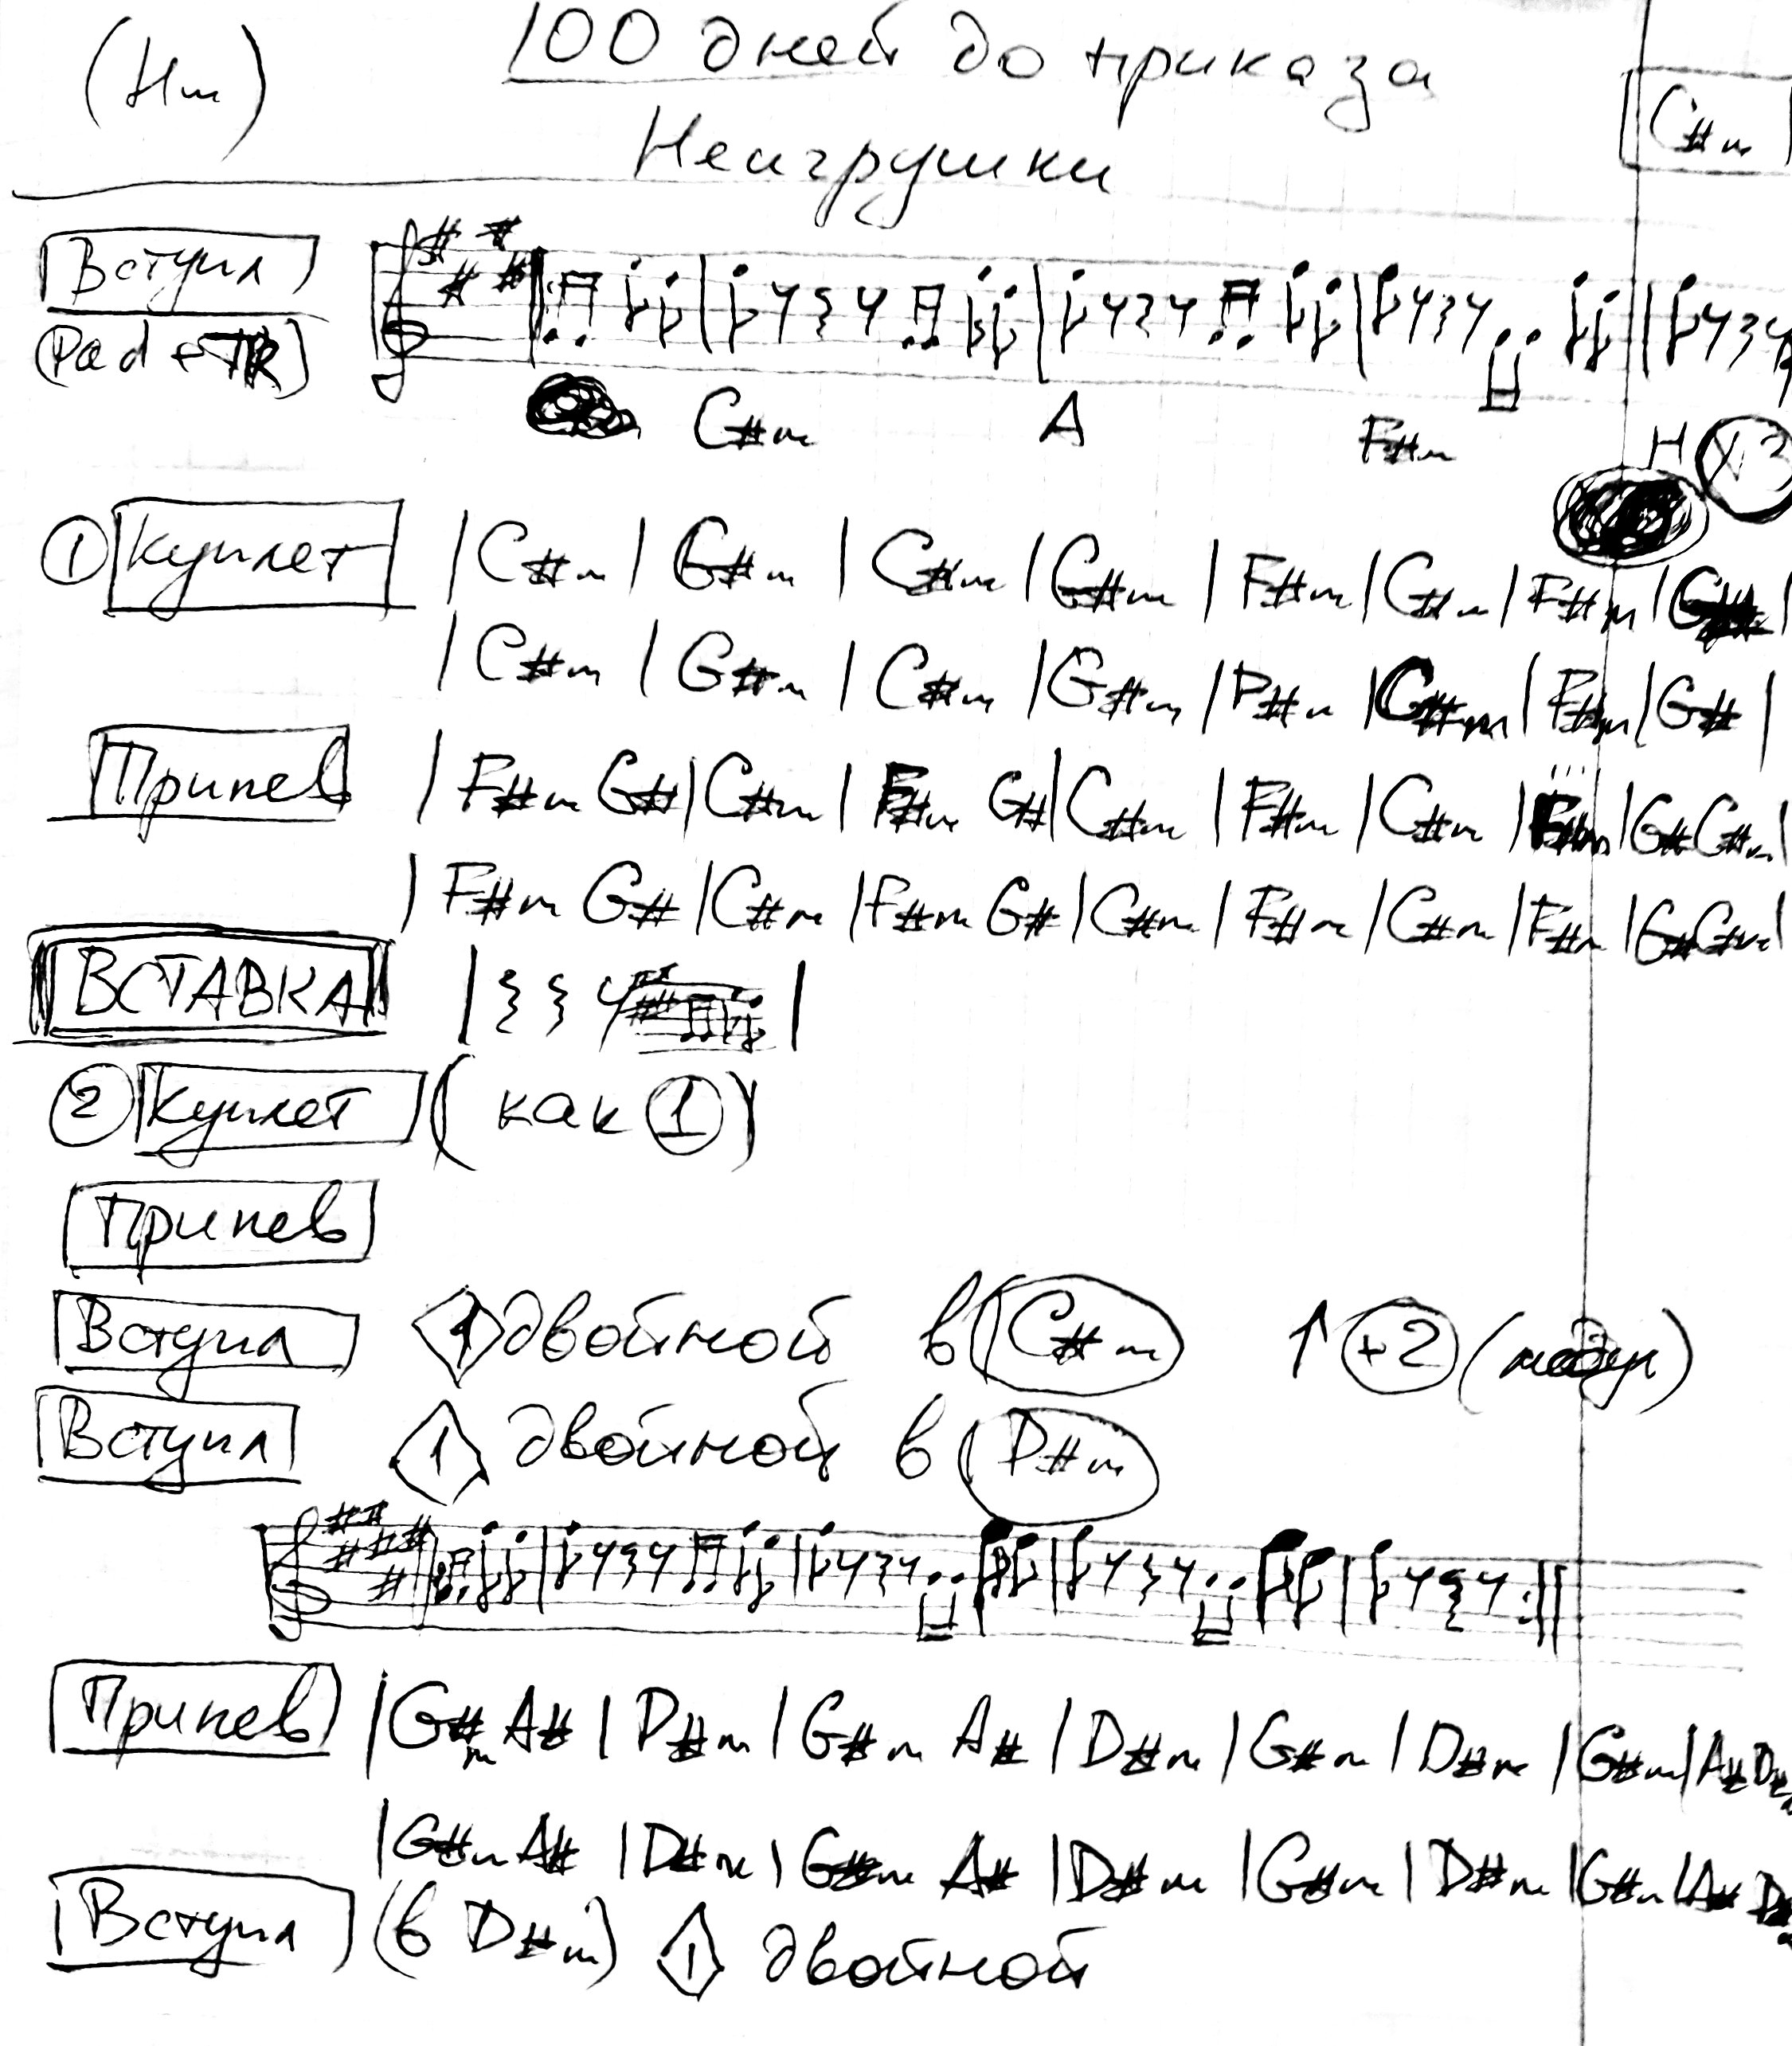 (Hm) 100 дней до приказа
Неигрушки C#m
Вступл
(Pad + TR)
C#m A F#m H
① Куплет | C#m | G#m | C#m | G#m | F#m | C#m | F#m | G# |
| C#m | G#m | C#m | G#m | F#m | C#m | F#m | G# |
Припев | F#m G# | C#m | F#m G# | C#m | F#m | C#m | F#m | G# C#m |
| F#m G# | C#m | F#m G# | C#m | F#m | C#m | F#m | G# C#m |
ВСТАВКА
② Куплет (как ①)
Припев
Вступл 1 двойной в C#m ↑ +2 (модул)
Вступл 1 двойной в D#m
Припев | G#m A# | D#m | G#m A# | D#m | G#m | D#m | G#m | A# D#m
| G#m A# | D#m | G#m A# | D#m | G#m | D#m | G#m | A# D#m
Вступл (в D#m) 1 двойной